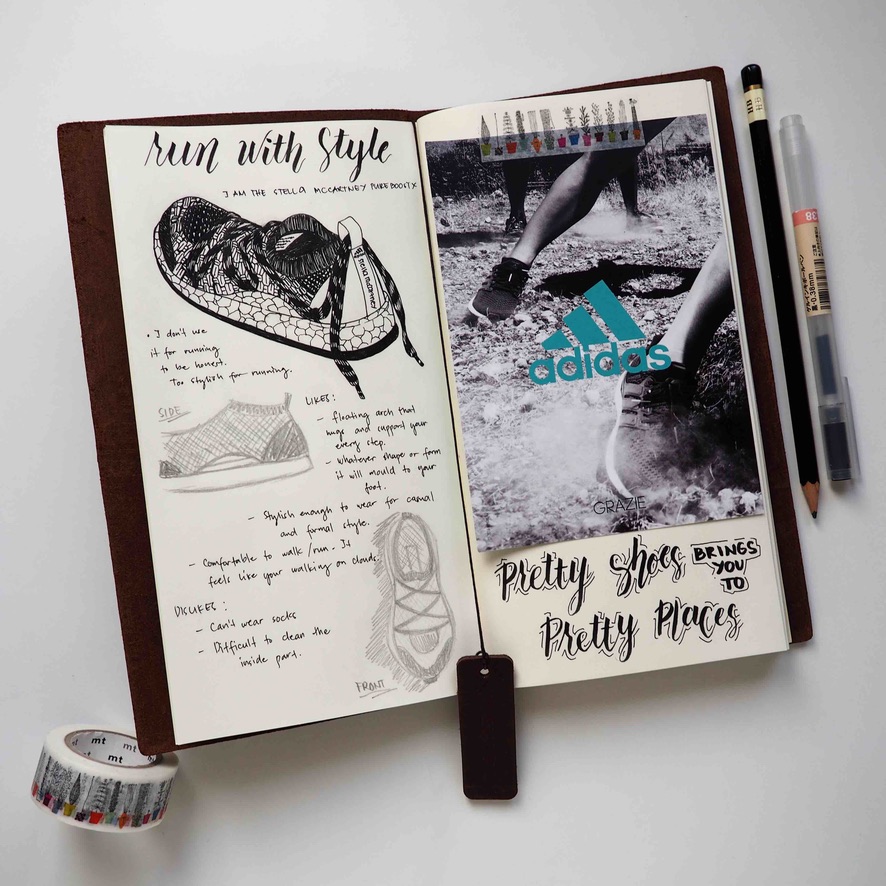 run with Style
I AM THE STELLA McCARTNEY PUREBOOSTX
• I don't use
it for running
to be honest.
Too stylish for running.
SIDE
LIKES:
- floating arch that
hugs and support your
every step.
- whatever shape or form
it will mould to your
foot.
- Stylish enough to wear for casual
and formal style.
- Comfortable to walk/run. It
feels like your walking on clouds.
DISLIKES:
- Can't wear socks
- Difficult to clean the
inside part.
FRONT
adidas
GRAZIE
Pretty Shoes BRINGS
YOU
TO
Pretty Places
HB
0.38mm
38
mt
mt
mt